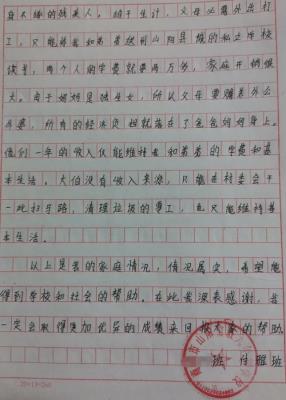 身大痛的残疾人。迫于生计，父母必需外出打
工，只能将我和弟弟送到山阳县城的私立学校
读书，两个人的学费就要两万多，家庭开销很
大。由于妈妈是独生女，所以父母要赡养外公
外婆，所有的经济负担就落在了爸爸妈妈身上。
他们一年的收入仅能维持我和弟弟的学费和基
本生活。大伯没有收入来源，只能在村委会干
一些扫马路，清理垃圾的零工，也只能维持基
本生活。
以上是我的家庭情况，情况属实，希望能
得到学校和社会的帮助。在此我深表感谢，我
一定会取得更加优异的成绩来回报 家的帮助
班